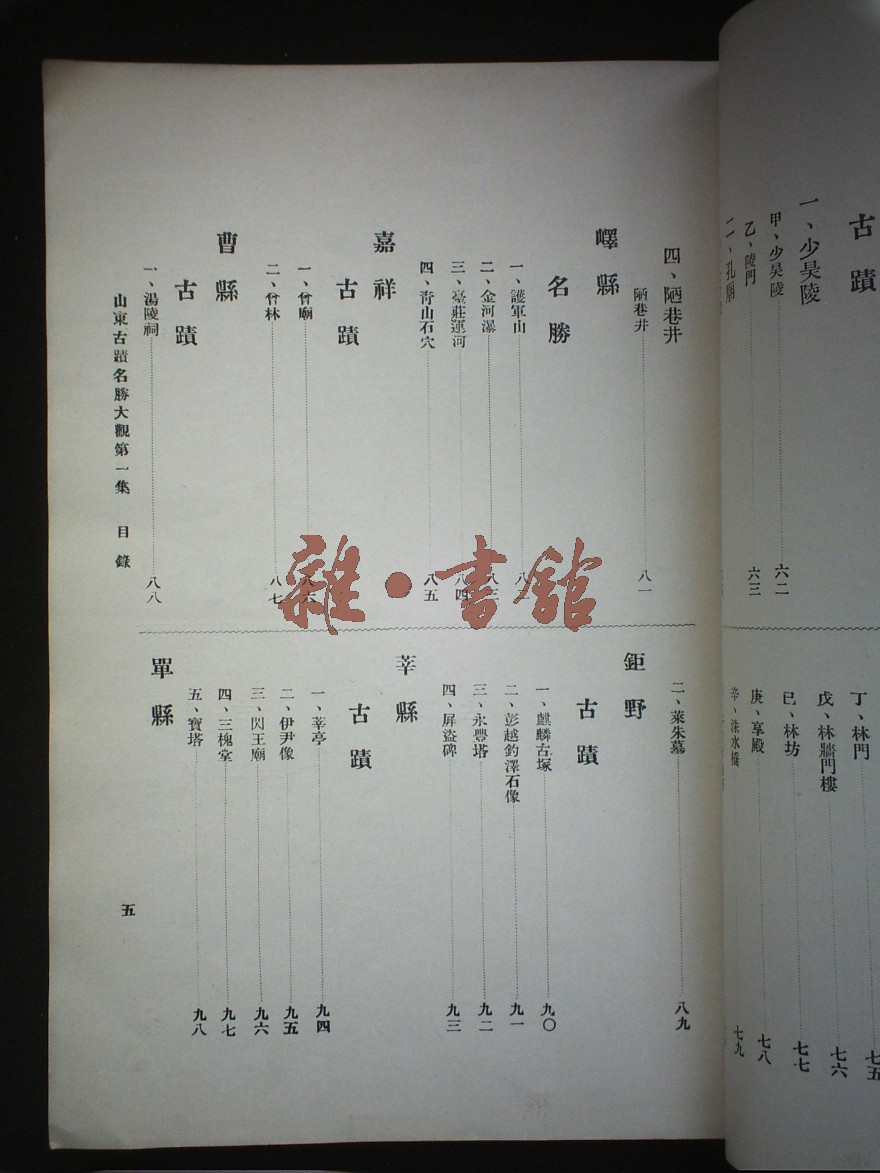 古蹟
一、少昊陵
甲、少昊陵 六二
乙、陵門 六三
二、孔廟
丁、林門 七五
戊、林牆門樓 七六
已、林坊 七七
庚、享殿 七八
辛、洙水橋 七九
四、陋巷井
陋巷井 八一
嶧縣
名勝
一、護軍山 八
二、金河瀑 八三
三、臺莊運河 八四
四、青山石穴 八五
嘉祥
古蹟
一、曾廟 八六
二、曾林 八七
曹縣
古蹟
一、湯陵祠 八八
二、萊朱墓 八九
鉅野
古蹟
一、麒麟古塚 九〇
二、彭越釣澤石像 九一
三、永豐塔 九二
四、屏盜碑 九三
莘縣
古蹟
一、莘亭 九四
二、伊尹像 九五
三、閃王廟 九六
四、三槐堂 九七
五、寶塔 九八
單縣
山東古蹟名勝大觀第一集 目錄
五
雜·書館